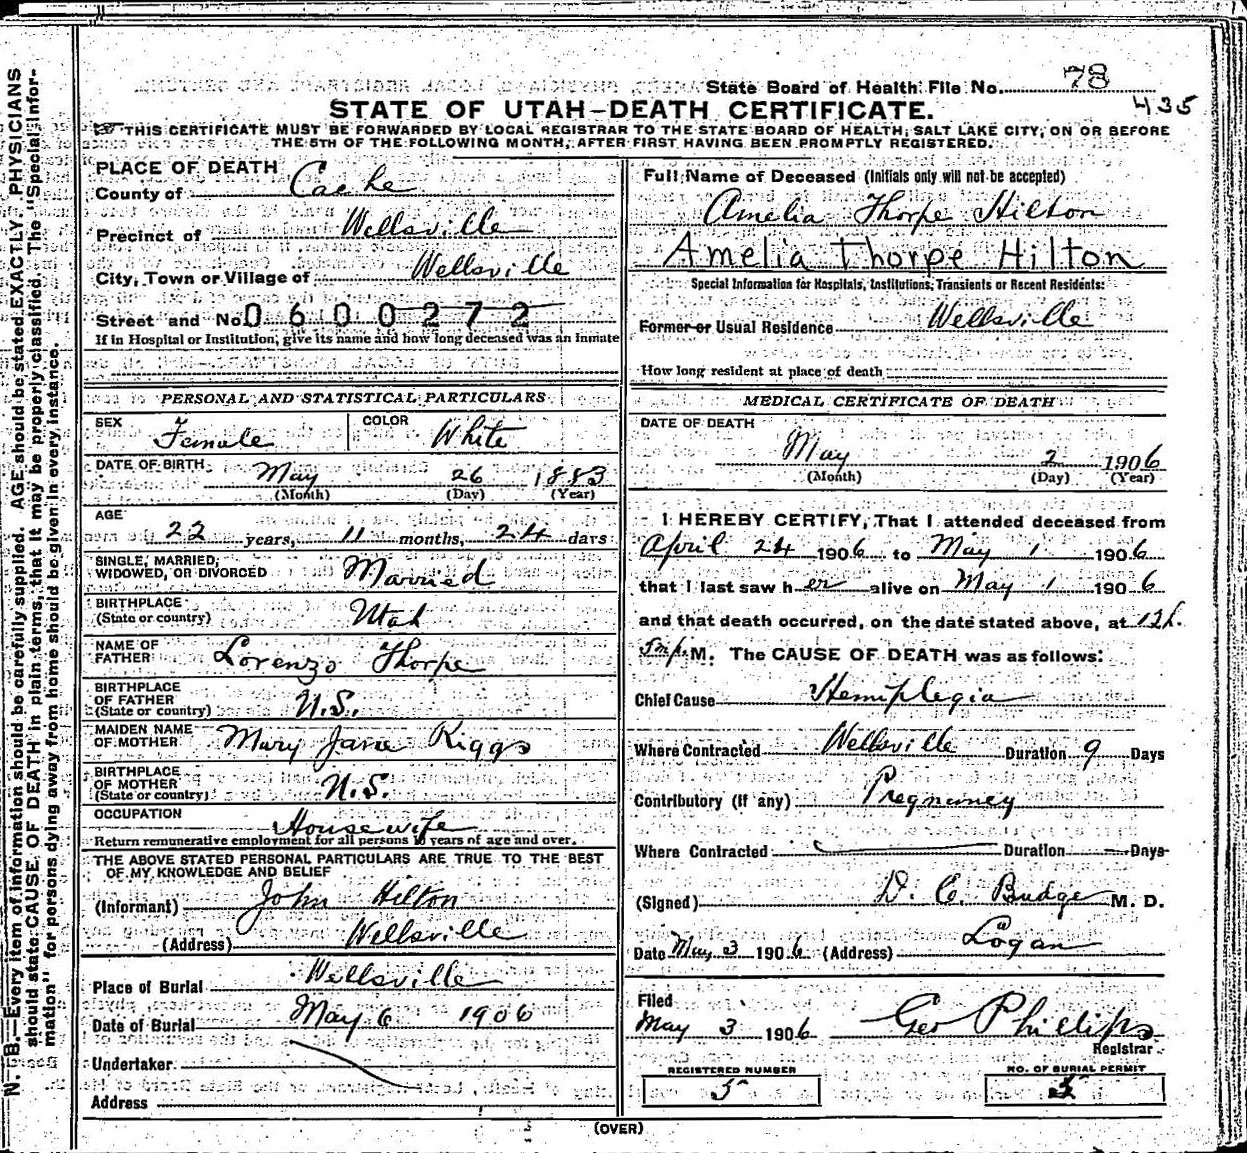 State Board of Health File No. 78
435
STATE OF UTAH–DEATH CERTIFICATE.
☞ THIS CERTIFICATE MUST BE FORWARDED BY LOCAL REGISTRAR TO THE STATE BOARD OF HEALTH, SALT LAKE CITY, ON OR BEFORE
THE 5TH OF THE FOLLOWING MONTH, AFTER FIRST HAVING BEEN PROMPTLY REGISTERED.
N. B.—Every item of information should be carefully supplied. AGE should be stated EXACTLY. PHYSICIANS
should state CAUSE OF DEATH in plain terms, that it may be properly classified. The "Special Infor-
mation" for persons dying away from home should be given in every instance.
PLACE OF DEATH
County of Cache
Precinct of Wellsville
City, Town or Village of Wellsville
Street and No. 0600272
If in Hospital or Institution, give its name and how long deceased was an Inmate
PERSONAL AND STATISTICAL PARTICULARS
SEX Female COLOR White
DATE OF BIRTH May 26 1883
(Month) (Day) (Year)
AGE
22 years, 11 months, 24 days
SINGLE, MARRIED,
WIDOWED, OR DIVORCED Married
BIRTHPLACE
(State or country) Utah
NAME OF
FATHER Lorenzo Thorpe
BIRTHPLACE
OF FATHER
(State or country) U.S.
MAIDEN NAME
OF MOTHER Mary Jane Riggs
BIRTHPLACE
OF MOTHER
(State or country) U.S.
OCCUPATION
Housewife
Return remunerative employment for all persons 10 years of age and over.
THE ABOVE STATED PERSONAL PARTICULARS ARE TRUE TO THE BEST
OF MY KNOWLEDGE AND BELIEF
(Informant) John Hilton
(Address) Wellsville
Place of Burial Wellsville
Date of Burial May 6 1906
Undertaker
Address
Full Name of Deceased (Initials only will not be accepted)
Amelia Thorpe Hilton
Amelia Thorpe Hilton
Special Information for Hospitals, Institutions, Transients or Recent Residents:
Former or Usual Residence Wellsville
How long resident at place of death
MEDICAL CERTIFICATE OF DEATH
DATE OF DEATH
May 2 1906
(Month) (Day) (Year)
I HEREBY CERTIFY, That I attended deceased from
April 24 1906 to May 1 1906
that I last saw her alive on May 1 1906
and that death occurred, on the date stated above, at 12h.
5m p. M. The CAUSE OF DEATH was as follows:
Chief Cause Hemiplegia
Where Contracted Wellsville Duration 9 Days
Contributory (If any) Pregnancy
Where Contracted Duration Days
(Signed) D. C. Budge M. D.
Date May 3 1906 (Address) Logan
Filed
May 3 1906 Geo Phillips
Registrar.
REGISTERED NUMBER
5
NO. OF BURIAL PERMIT
5
(OVER)